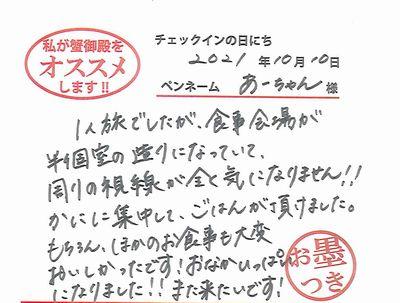 私が蟹御殿を
オススメ
します!!
チェックインの日にち
2021 年 10月 10日
ペンネーム あーちゃん 様
1人旅でしたが、食事会場が
半個室の造りになっていて、
周りの視線が全く気になりません!!
かにに集中して、ごはんが頂けました。
もちろん、ほかのお食事も大変
おいしかったです!おなかいっぱい
になりました!!また来たいです!
お墨
つき